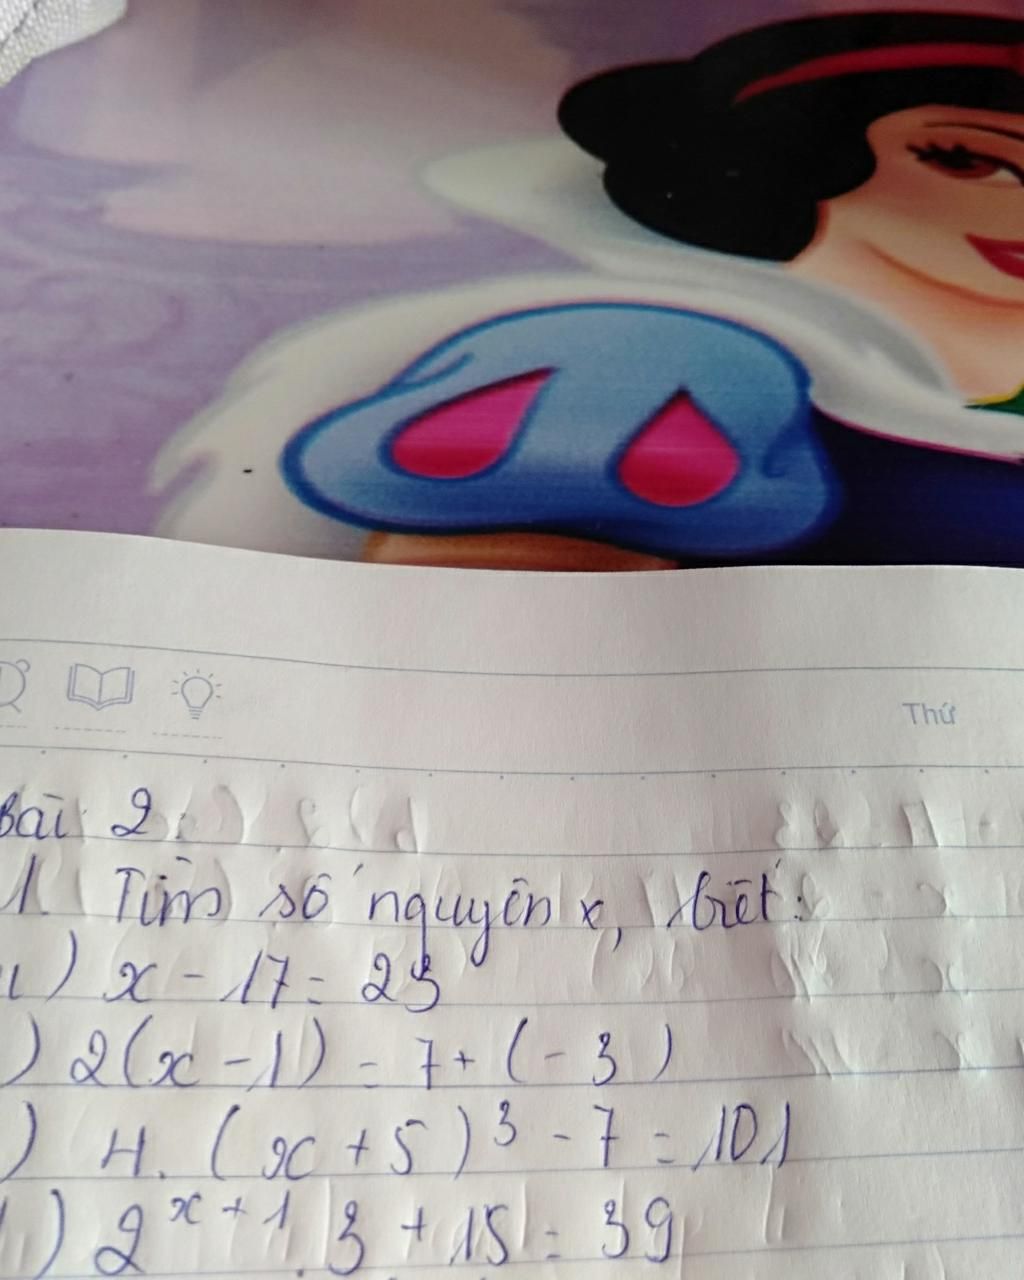 Thứ
Bài 2:
1. Tìm số nguyên x, biết:
a) x - 17 = 23
) 2(x - 1) = 7 + (- 3)
) 4. (x + 5)³ - 7 = 101
) 2ˣ⁺¹.3 + 15 = 39